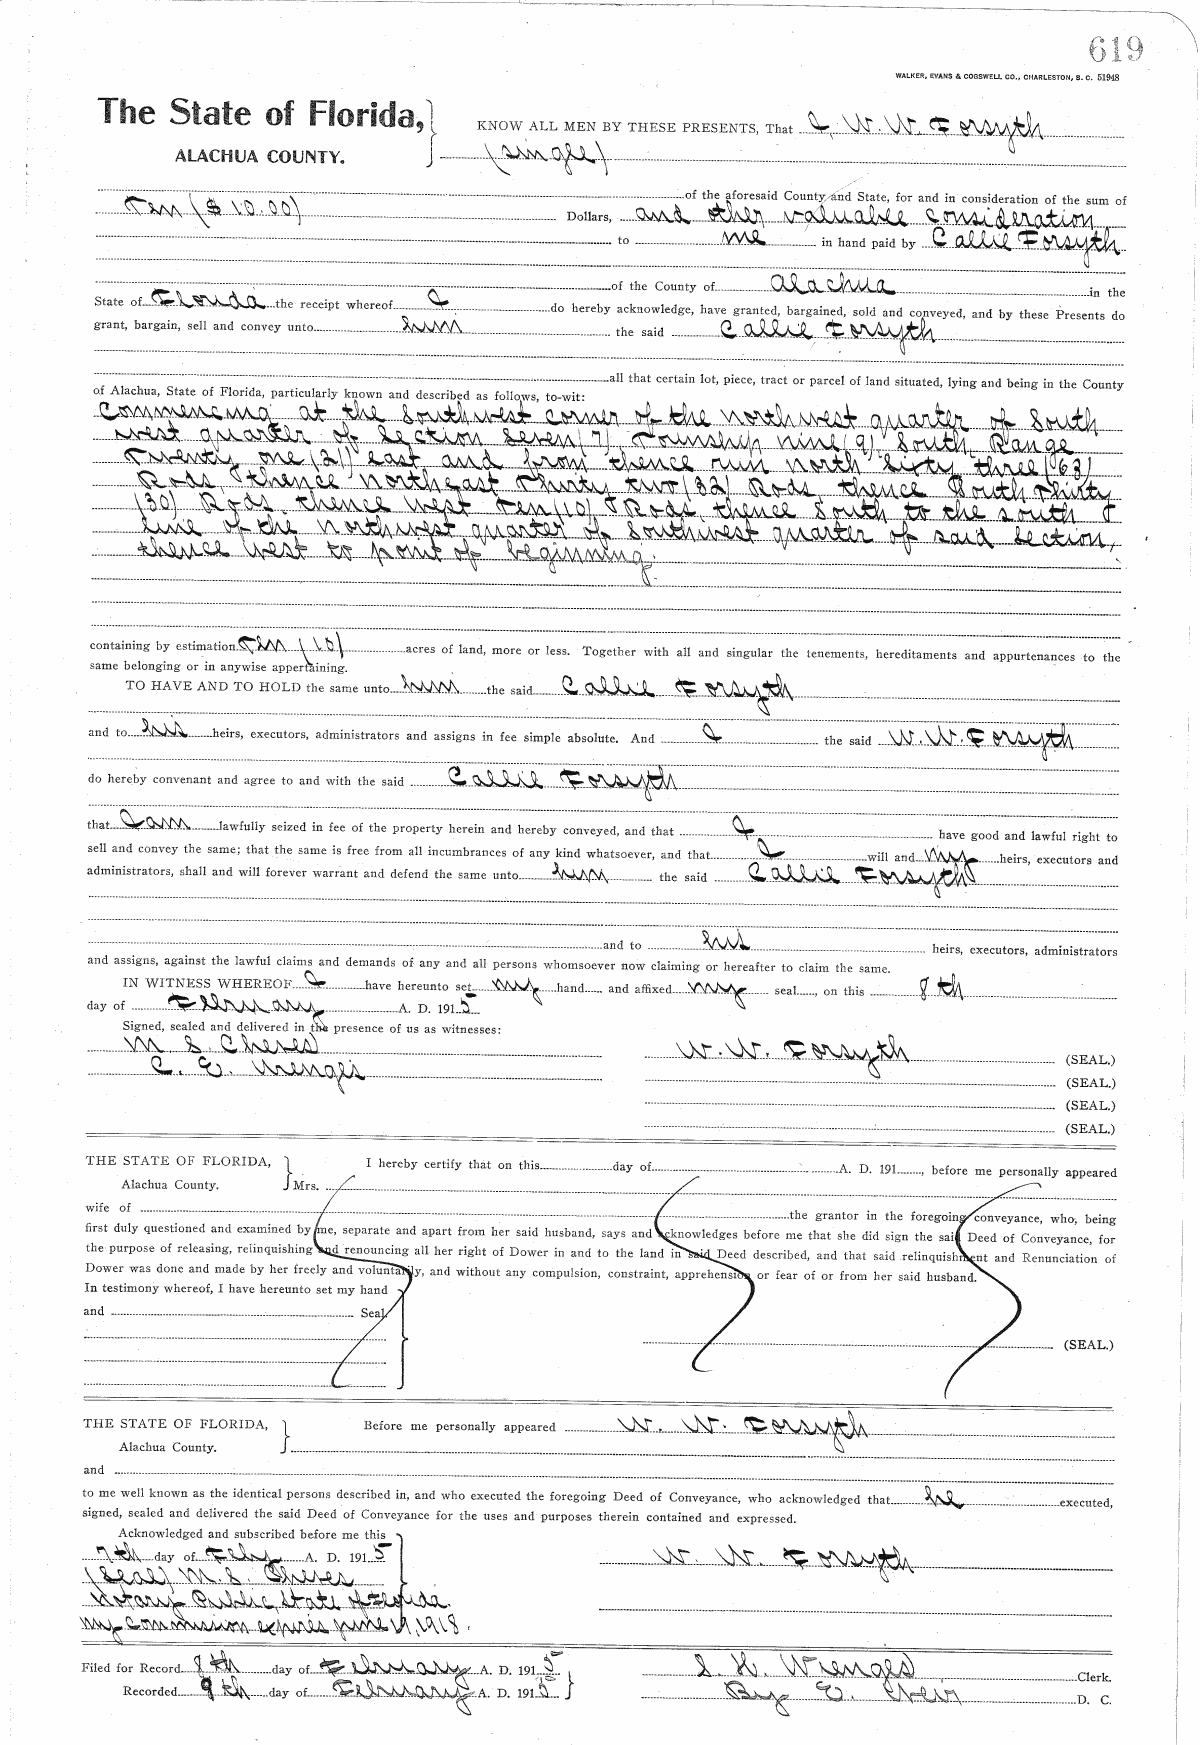 619
WALKER, EVANS & COGSWELL CO., CHARLESTON, S. C. 51948
The State of Florida,
ALACHUA COUNTY.
KNOW ALL MEN BY THESE PRESENTS, That I, W. W. Forsyth
(single)
of the aforesaid County and State, for and in consideration of the sum of
Ten ($10.00) Dollars, and other valuable consideration
to me in hand paid by Callie Forsyth
of the County of Alachua in the
State of Florida the receipt whereof I do hereby acknowledge, have granted, bargained, sold and conveyed, and by these Presents do
grant, bargain, sell and convey unto him the said Callie Forsyth
all that certain lot, piece, tract or parcel of land situated, lying and being in the County
of Alachua, State of Florida, particularly known and described as follows, to-wit:
Commencing at the Southwest corner of the northwest quarter of South
west quarter of Section Seven (7) Township nine (9) South, Range
Twenty one (21) east and from thence run north Sixty three (63)
Rods, thence Northeast Thirty two (32) Rods, thence South Thirty
(30) Rods, thence west Ten (10) Rods, thence South to the south
line of the northwest quarter of Southwest quarter of said Section,
thence West to point of beginning.
containing by estimation Ten (10) acres of land, more or less. Together with all and singular the tenements, hereditaments and appurtenances to the
same belonging or in anywise appertaining.
TO HAVE AND TO HOLD the same unto him the said Callie Forsyth
and to his heirs, executors, administrators and assigns in fee simple absolute. And I the said W. W. Forsyth
do hereby convenant and agree to and with the said Callie Forsyth
that I am lawfully seized in fee of the property herein and hereby conveyed, and that I have good and lawful right to
sell and convey the same; that the same is free from all incumbrances of any kind whatsoever, and that I will and my heirs, executors and
administrators, shall and will forever warrant and defend the same unto him the said Callie Forsyth
and to his heirs, executors, administrators
and assigns, against the lawful claims and demands of any and all persons whomsoever now claiming or hereafter to claim the same.
IN WITNESS WHEREOF I have hereunto set my hand, and affixed my seal, on this 8th
day of February A. D. 1915
Signed, sealed and delivered in the presence of us as witnesses:
M S. Cheves
C. E. Wienges
W. W. Forsyth (SEAL.)
(SEAL.)
(SEAL.)
(SEAL.)
THE STATE OF FLORIDA,
Alachua County.
I hereby certify that on this day of A. D. 191 , before me personally appeared
Mrs.
wife of the grantor in the foregoing conveyance, who, being
first duly questioned and examined by me, separate and apart from her said husband, says and acknowledges before me that she did sign the said Deed of Conveyance, for
the purpose of releasing, relinquishing and renouncing all her right of Dower in and to the land in said Deed described, and that said relinquishment and Renunciation of
Dower was done and made by her freely and voluntarily, and without any compulsion, constraint, apprehension or fear of or from her said husband.
In testimony whereof, I have hereunto set my hand
and Seal
(SEAL.)
THE STATE OF FLORIDA,
Alachua County.
Before me personally appeared W. W. Forsyth
and
to me well known as the identical persons described in, and who executed the foregoing Deed of Conveyance, who acknowledged that he executed,
signed, sealed and delivered the said Deed of Conveyance for the uses and purposes therein contained and expressed.
Acknowledged and subscribed before me this
7th day of Feby A. D. 1915
W. W. Forsyth
(Seal) M. S. Cheves
Notary Public, State of Florida.
My Commission expires June 1918.
Filed for Record 8th day of February A. D. 1915
S. H. Wienges Clerk.
Recorded 9th day of February A. D. 1915
By E. D. C.